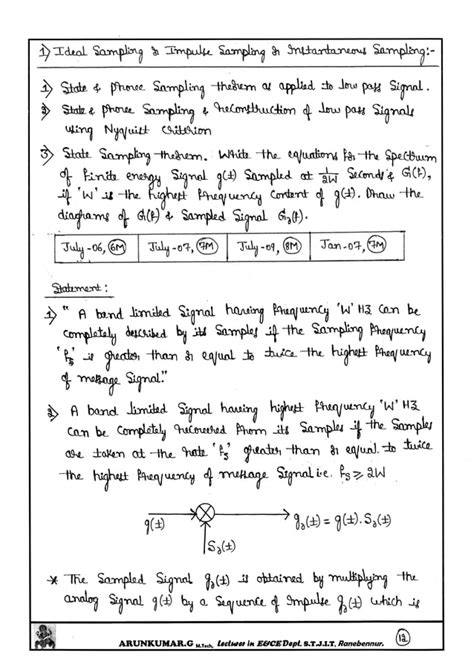 1) Ideal Sampling & Impulse Sampling & Instantaneous Sampling:-
1) State & prove Sampling theorem as applied to low pass Signal.
2) State & prove Sampling & Reconstruction of low pass Signals
using Nyquist Criterion
3) State Sampling theorem. Write the equations for the Spectrum
of finite energy Signal g(t) Sampled at 1/2W Seconds & G(f),
if 'W' is the highest frequency content of g(t). Draw the
diagrams of G(f) & Sampled Signal Gδ(f).
July-06, 6M July-07, 7M July-09, 8M Jan-07, 7M
Statement:
1) "A band limited Signal having frequency 'W' HZ can be
completely described by its Samples if the Sampling frequency
'fs' is greater than or equal to twice the highest frequency
of message Signal."
2) A band limited Signal having highest frequency 'W' HZ
can be completely recovered from its Samples if the Samples
are taken at the rate 'fs' greater than or equal to twice
the highest frequency of message Signal i.e. fs ≥ 2W
g(t) gδ(t) = g(t). Sδ(t)
Sδ(t)
* The Sampled Signal gδ(t) is obtained by multiplying the
analog Signal g(t) by a Sequence of Impulse gδ(t) which is
ARUNKUMAR.G M.Tech, Lecturer in E&CE Dept. S.T.J.I.T, Ranebennur. 12